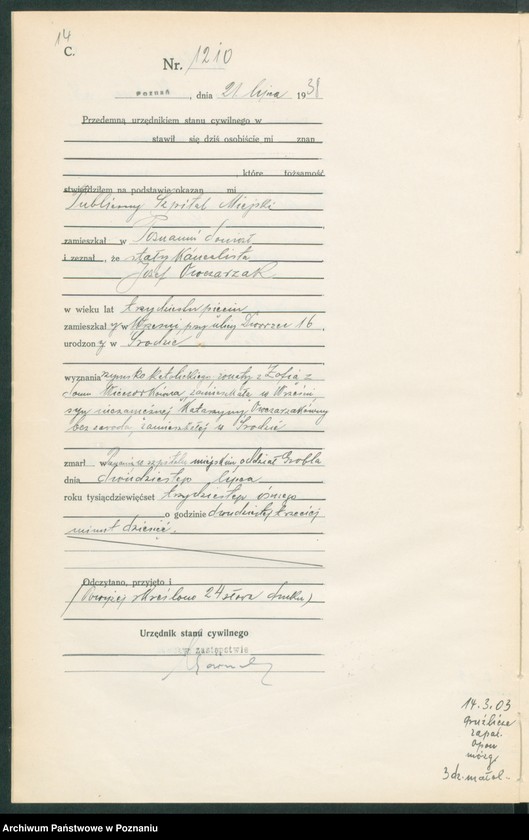 14
C.
Nr. 1210
Poznań, dnia 21 lipca 1938
Przedemną urzędnikiem stanu cywilnego w
stawił się dziś osobiście mi znan
, które tożsamość
stwierdziłem na podstawie okazan mi
Publiczny Szpital Miejski
zamieszkał w Poznaniu doniósł
i zeznał, że stały kancelista
Józef Owczarzak
w wieku lat trzydziestu pięciu
zamieszkał y w Wrześni, przy ulicy Dworzec 16,
urodzon y w Środzie
wyznania rzymsko katolickiego, żonaty z Zofią z
domu Wieczorkówną, zamieszkałą w Wrześni,
syn niezamężnej Katarzyny Owczarzakówny
bez zawodu, zamieszkałej w Środzie
zmarł w Poznaniu w szpitalu miejskim oddział Grobla
dnia dwudziestego lipca
roku tysiącdziewięćset trzydziestego ósmego
o godzinie dwudziestej trzeciej
minut dziesięć.
Odczytano, przyjęto i
(Powyżej skreślono 24 słowa druku)
Urzędnik stanu cywilnego
w zastępstwie
14.3.03
gruźlicze
zapal.
opon
mózg.
3 dz. małol.
Archiwum Państwowe w Poznaniu